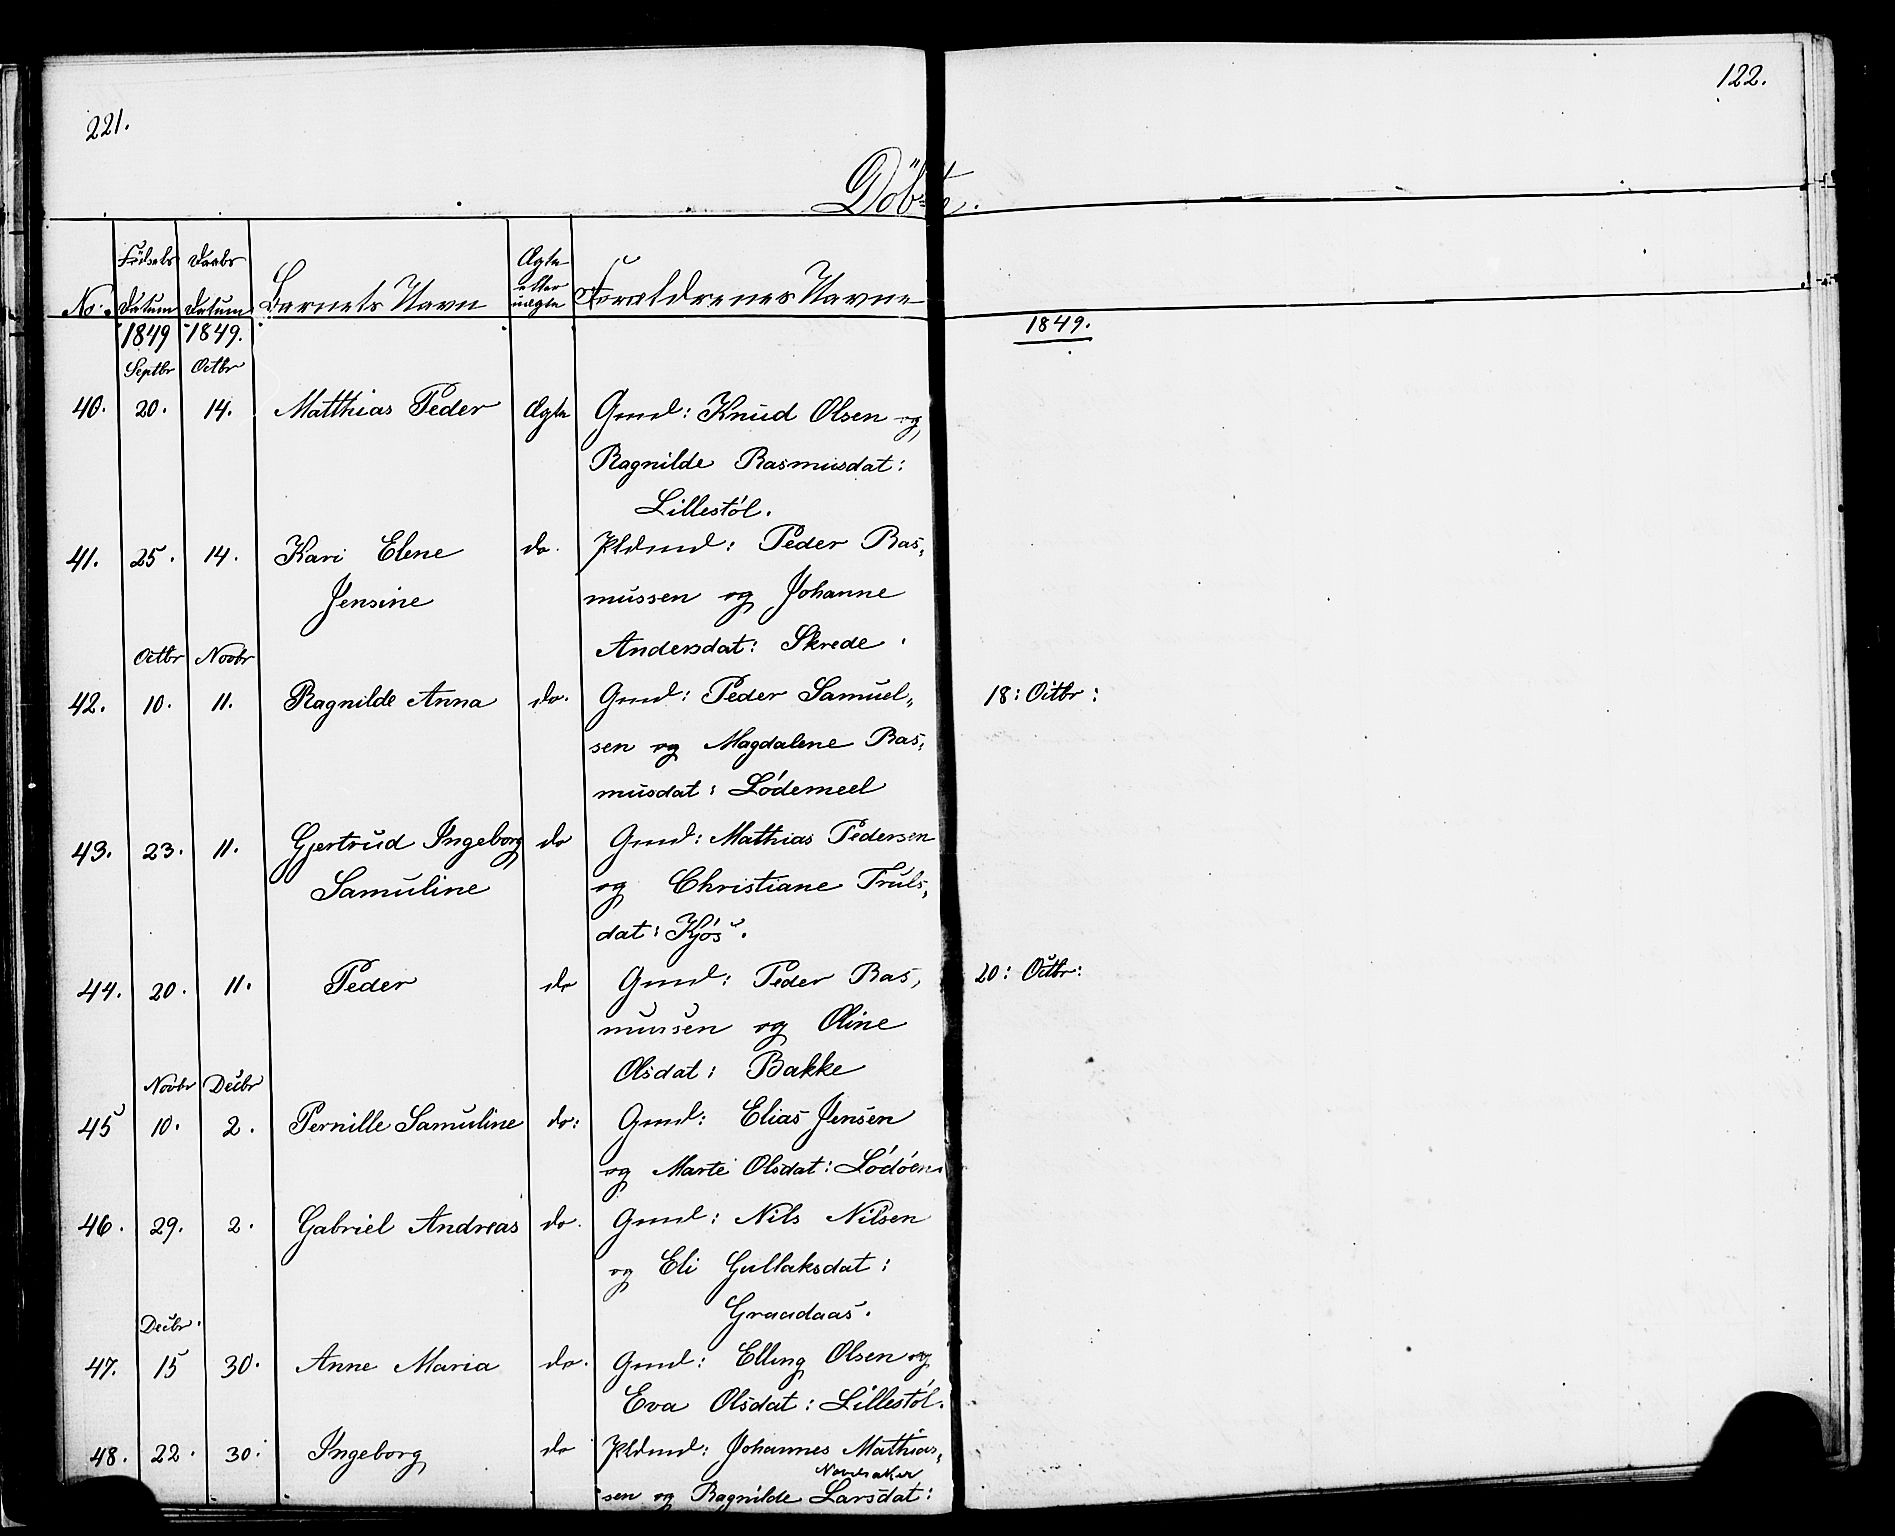 221.
122.
Döbte.
No. Födsels Datum Daabs Datum Barnets Navn Ægte eller uægte Forældrenes Navne
1849 1849. 1849.
Septbr Octbr
40. 20. 14. Matthias Peder Ægte Gmd: Knud Olsen og
Ragnilde Rasmusdat:
Lillestöl.
41. 25. 14. Kari Elene do. Pldmd: Peder Ras,
Jensine mussen og Johanne
Andersdat: Skrede.
Octbr Novbr
42. 10. 11. Ragnilde Anna do. Gmd: Peder Samuel, 18: Octbr:
sen og Magdalene Ras,
musdat: Lödemeel
43. 23. 11. Gjertrud Ingeborg do Gmd: Mathias Pedersen
Samuline og Christiane Truls,
dat: Kjös.
44. 20. 11. Peder do Gmd: Peder Ras, 20: Octbr:
mussen og Oline
Olsdat: Bakke
Novbr Decbr
45 10. 2. Pernille Samuline do: Gmd: Elias Jensen
og Marte Olsdat: Lödöen.
46. 29. 2. Gabriel Andreas do. Gmd: Nils Nilsen
og Eli Gullaksdat:
Graadaas.
Decbr.
47. 15 30. Anne Maria do. Gmd: Elling Olsen og
Eva Olsdat: Lillestöl.
48. 22. 30. Ingeborg do Pldmd: Johannes Mathias,
sen og Ragnilde Larsdat: